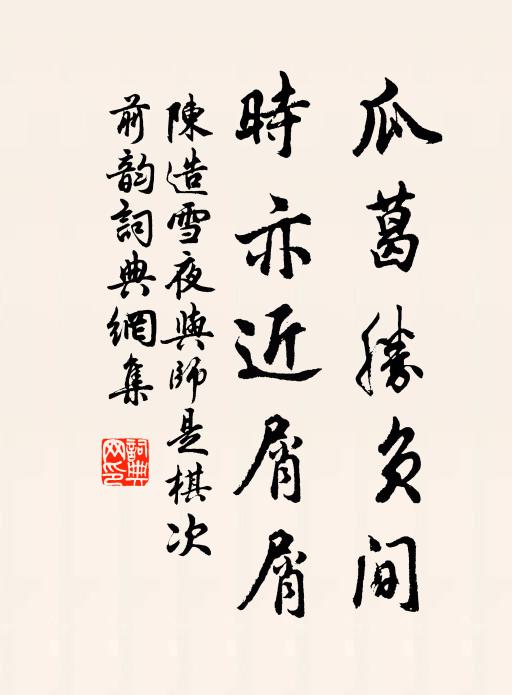 瓜葛勝負間
時亦近屑屑
陳造雪夜與師是棋次
前韵詞典網集
詞典网印